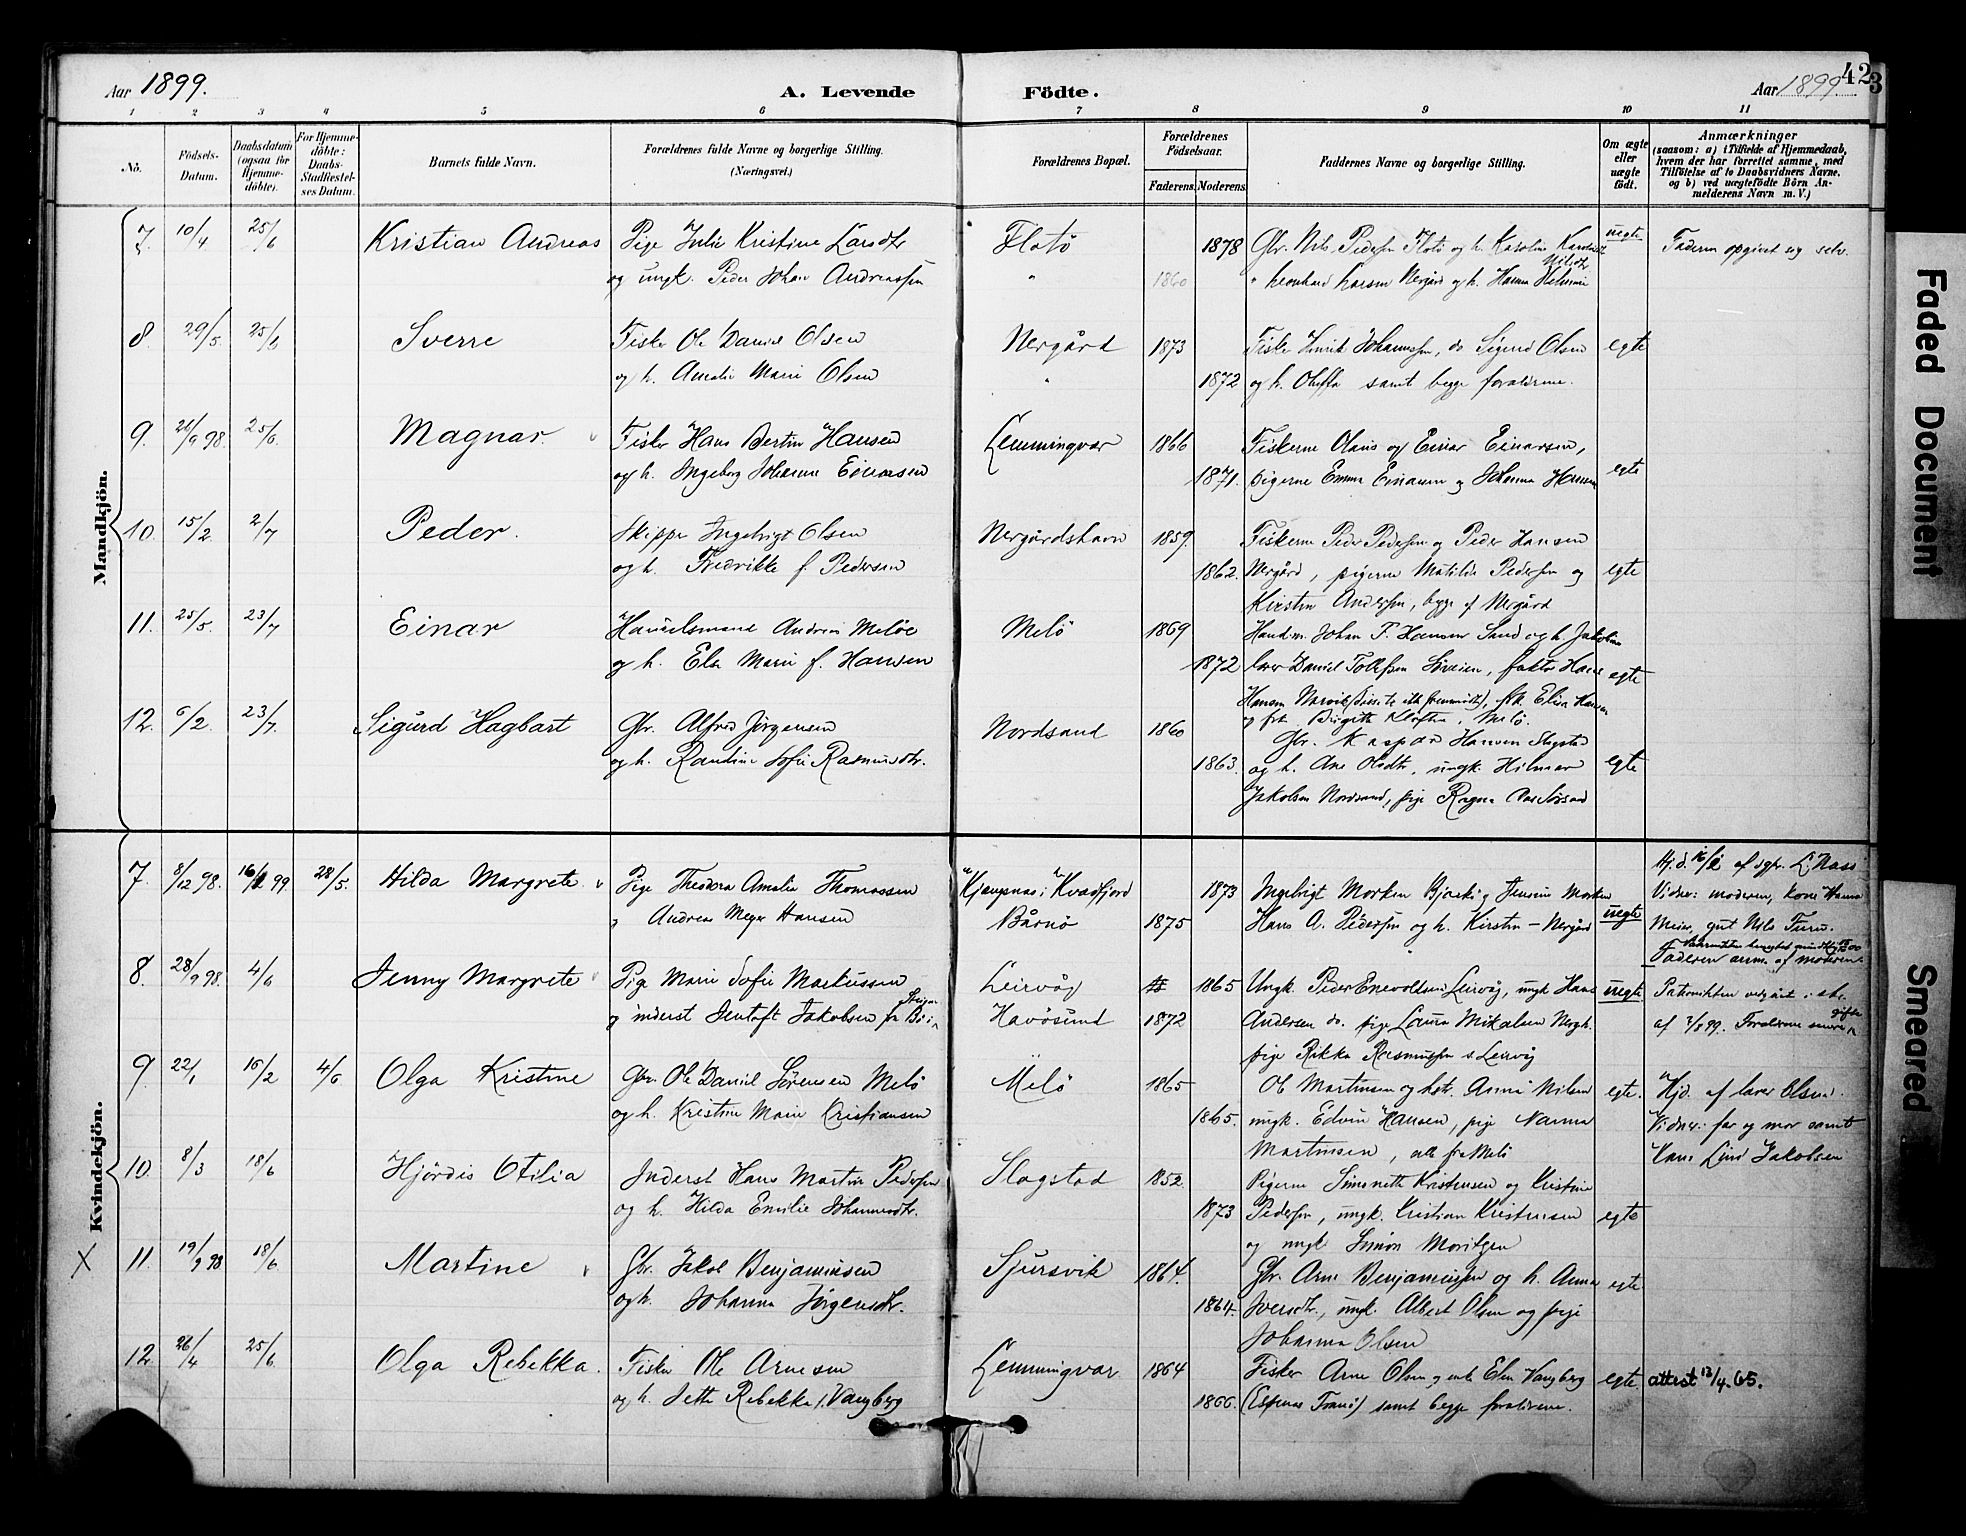 Aar 1899.
A. Levende Födte.
Aar 1899.
42
3
1 2 3 4 5 6 7 8 9 10 11
No.
Födsels-Datum.
Daabsdatum (ogsaa for Hjemme-döbte).
For Hjemme-döbte: Daabs-Stadfæstel-ses Datum.
Barnets fulde Navn.
Forældrenes fulde Navne og borgerlige Stilling.
(Næringsvei.)
Forældrenes Bopæl.
Forældrenes Födselsaar.
Faderens. Moderens.
Faddernes Navne og borgerlige Stilling.
Om ægte eller uægte födt.
Anmærkninger
(saasom: a) i Tilfælde af Hjemmedaab,
hvem der har forrettet samme, med
Tilföielse af to Daabsvidners Navne,
og b) ved uægtefödte Börn An-
melderens Navn m. V.)
Mandkjön.
7. 10/4 25/6 Kristian Andreas Pige Julie Kristine Larsdtr Flatö 1878 Gbr. Nils Pedersen Flatö og h. Karolin uegte Faderen opgivet sig selv.
og ungk. Peder Johan Andreassen " 1860 " Leonhard Larsen Nergård og h. Hanna
8. 29/5. 25/6 Sverre Fisker Ole Daniel Olsen Nergård 1873 Fisker Henrik Johannesen, do Sigurd Olsen egte
og h. Amalie Marie Olsen " 1872 og h. Oluffa samt begge forældrene.
9. 21/9 98. 25/6. Magnar. Fisker Hans Bertin Hansen Lemmingvær 1866 Fiskerne Olaus og Einar Einarsen,
og h. Ingeborg Johanne Einarsen 1871. pigerne Emma Einarsen og Johanna Hansen egte
10. 15/2. 2/7 Peder. Skipper Ingebrigt Olsen Nergårdshavn 1859. Fiskerne Peder Pedersen og Peder Hansen
og h. Fredrikke f. Pedersen 1862. Nergård, pigerne Matilde Pedersen og egte
Kirstin Andersen, begge af Nergård
11. 25/5. 23/7 Einar Handelsmand Andreas Meløe Melö 1869 Handm. Johan P. Hansen Sand og h. Jakobine
og h. Elen Marie f. Hansen 1872 lærer Daniel Tollefsen Sørreisen, faktor Hans egte
Hansen frk. Elise Hansen
og frk. Birgitte Melö.
12. 6/2. 23/7. Sigurd Hagbart Gbr. Alfred Jörgensen Nordsand 1860 Gbr. Kaspar Hansen Slagstad
og h. Randine Sofie Rasmusdtr. 1863. og h. Ane Olsdtr, ungk. Hilmar egte
Jakobsen Nordsand, pige Ragna
Kvindekjön.
7. 8/12 98. 16/2 99 28/5. Hilda Margrete Pige Theodora Amalie Thomassen Kjengsnæs i Kvædfjord 1873 Ingebrigt Morken Bjarkö og Jensine Morken Hj.d. 16/2 af dgh. L. Hass
" Andreas Meyer Hansen Bårnö 1875 Hans A. Pedersen og h. Kirstin – Nergård uegte Vidner: moderen, kone Hanna
Meier, gut Nils Furu.
Faderen anm. af moderen.
8. 28/9 98. 4/6 Jenny Margrete Pige Marie Sofie Markussen Leirvåg 1865 Ungk. Peder Enevoldsen Leirvåg, ungk Hans uegte Patronikten vedgået i skr.
og inderst Jentoft Jakobsen fra Havösund 1872 Andersen do. pige Laura Mikalsen Nergh. af 7/8 99. Forældrene senere gifte
pige Rikka Rasmussen Leirvåg
9 22/1 16/2 4/6 Olga Kristine Gbr. Ole Daniel Sörensen Melö Melö 1865 Ole Martinsen og hstr. Anna Nilsen egte. Hjd. af lærer Olsen.
og h. Kristine Marie Kristiansen 1865. ungk. Edvin Hansen, pige Nanna Vidner: far og mor samt
Martinsen, alle fra Melö Hans Lind Jakobsen
10. 8/3 18/6 Hjördis Otilia Inderst Hans Martin Pedersen Slagstad 1852. Pigerne Simonette Kristensen og Kristine
og h. Hilda Emilie Johannesdtr. 1873 Pedersen, ungk. Kristian Kristensen egte
og ungk Simon Moritzen
X 11. 19/9 98 18/6. Martine Gbr. Jakob Benjaminsen Sjursvik 1864. Gbr. Arne Benjaminsen og h. Anna egte.
og h. Johanna Jörgensdtr. 1864. Iversdtr., ungk. Albert Olsen og pige
Johanna Olsen
12. 26/4 25/6. Olga Rebekka. Fisker Ole Arnesen Lemmingvær. 1864 Fisker Arne Olsen og enke Elen Vangberg egte. attest 13/4.65.
og h. Jette Rebekka f. Vangberg 1866. (Espenes Tranö) samt begge forældrene.
Faded Document
Smeared